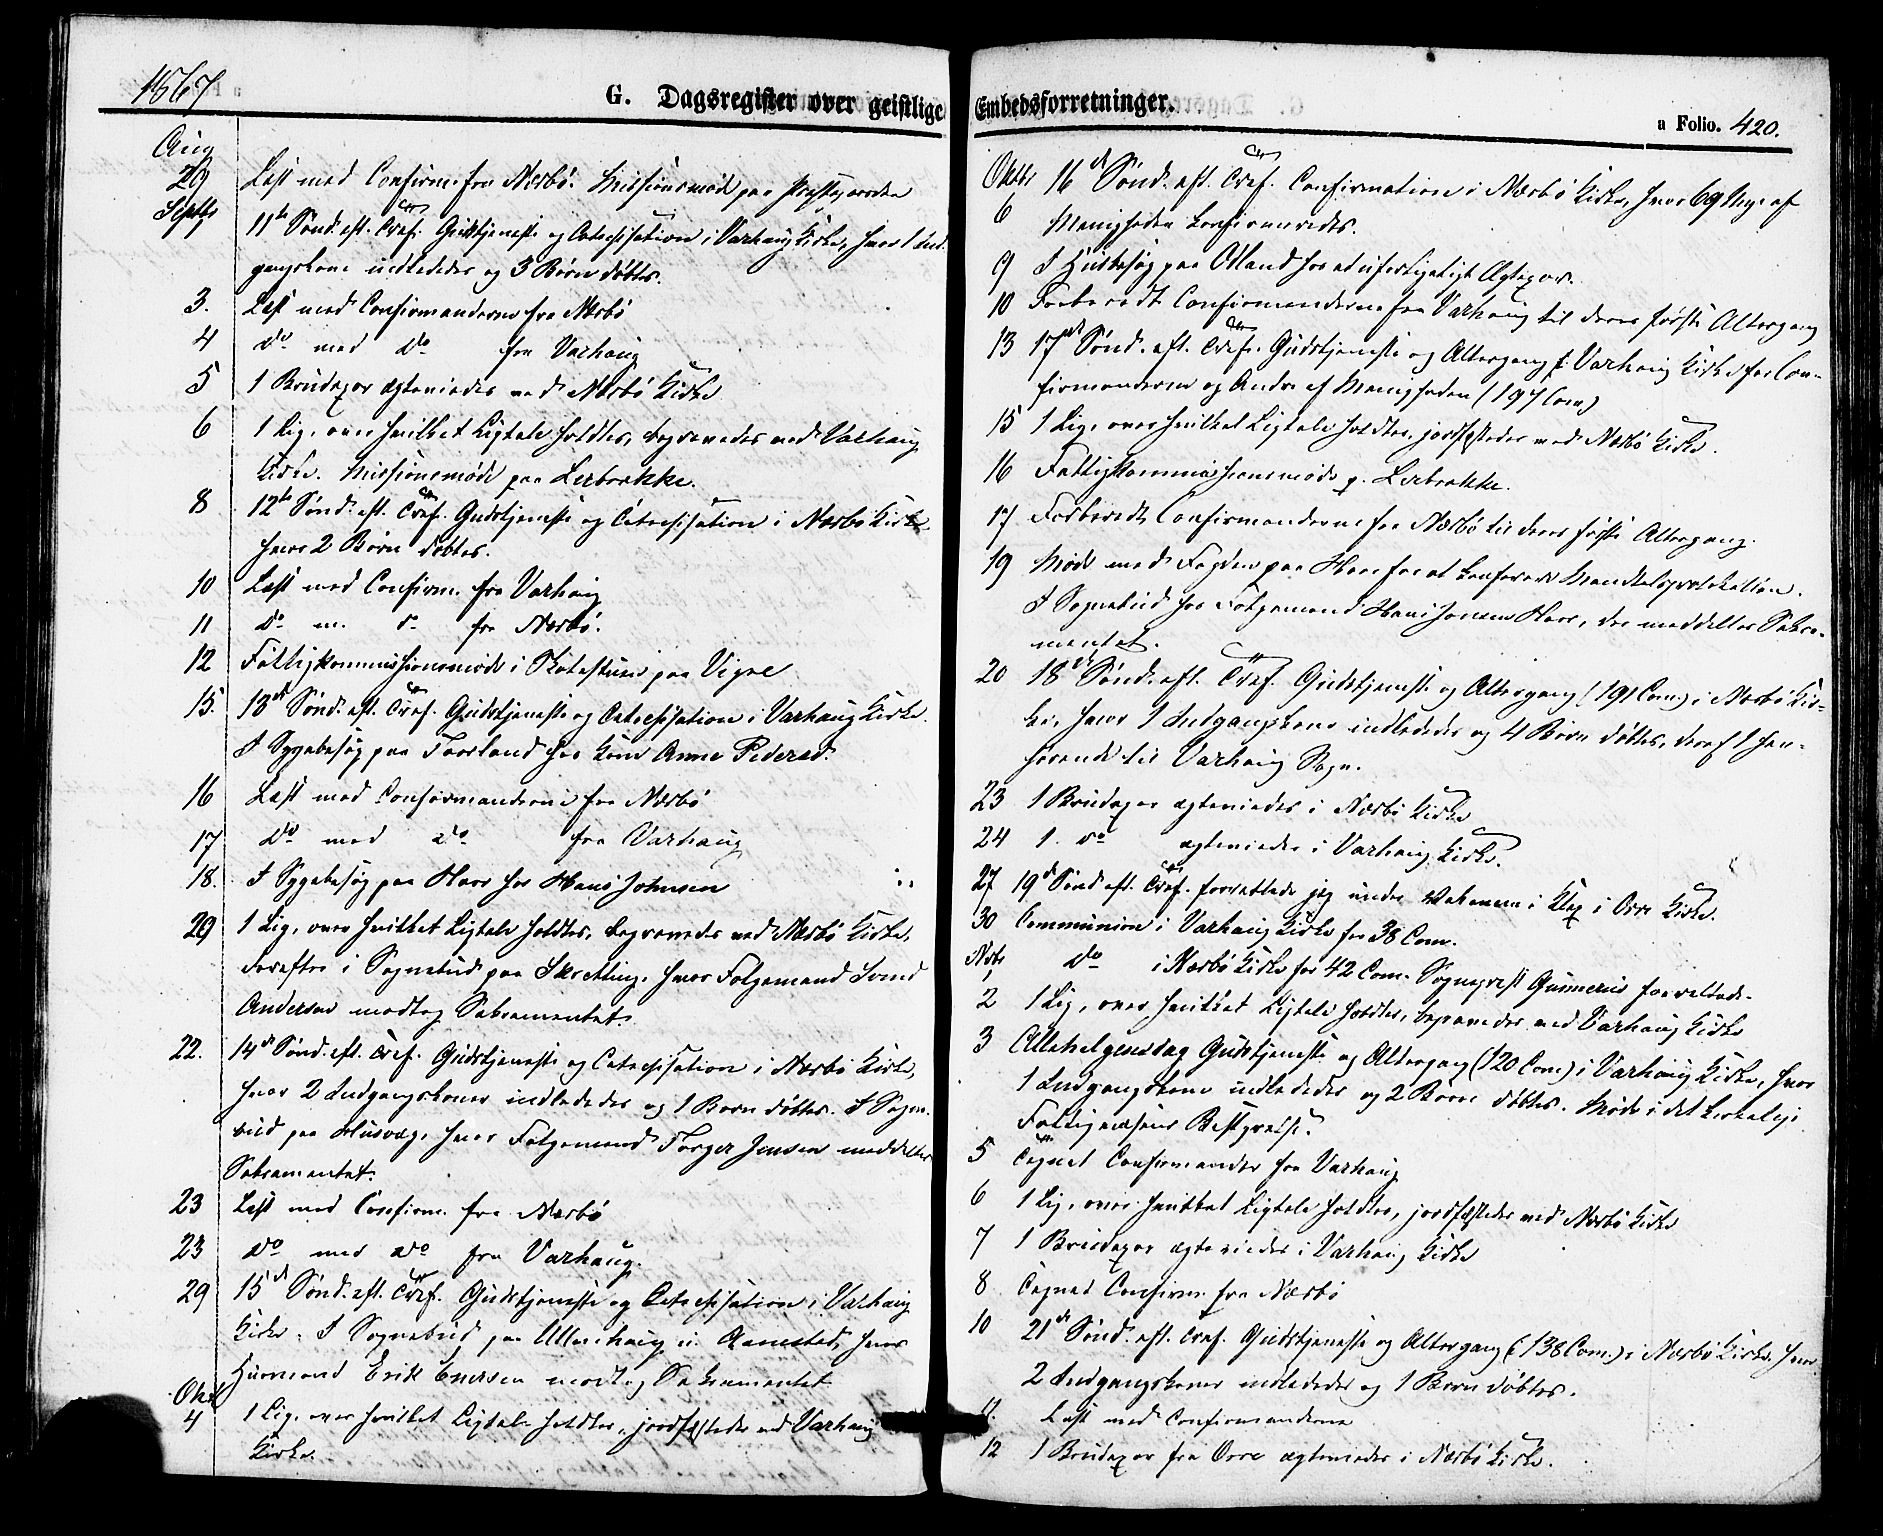 1867
G. Dagsregister over geistlige
Aug
29 Læst med Confirm. fra Nærbø. Missionsmøde paa Præstegaarden
Septbr
1 11te Sønd. eft. Tref. Gudstjeneste og Catechisation i Varhaug Kirke, hvor 1 Ind-
gangskone indlededes og 3 Børn døbtes.
3. Læst med Confirmanderne fra Nærbø
4 do med do fra Varhaug
5 1 Brudepar ægteviedes ved Nærbø Kirke
6 1 Lig, over hvilket Ligtale holdtes, begravedes ved Varhaug
Kirke. Missionsmøde paa Lerbrække.
8 12te Sønd. eft. Tref. Gudstjeneste og Catechisation i Nærbø Kirke
hvor 2 Børn døbtes.
10 Læst med Confirm. fra Varhaug
11 do m. do fra Nærbø.
12 Fattigkommissionsmøde i Skolestuen paa Vigre
15. 13de Sønd. eft. Tref. Gudstjeneste og Catechisation i Varhaug Kirke.
I Sygebesøg paa Torland hos Kone Anne Pedersd.
16 Læst med Confirmanderne fra Nærbø
17 do med do fra Varhaug
18. I Sygebesøg paa Haar hos Hans Johnsen
20 1 Lig, over hvilket Ligtale holdtes, begravedes ved Nærbø Kirke,
derefter i Sognebud paa Skretting, hvor Følgemand Svend
Andersen modtog Sakramentet.
22. 14de Sønd. eft. Tref. Gudstjeneste og Catechisation i Nærbø Kirke,
hvor 2 Indgangskoner indlededes og 1 Barn døbtes. I Sogne-
bud paa Husvæg, hvor Følgemand Torger Jensen meddeltes
Sakramentet.
23 Læst med Confirm. fra Nærbø
23 do med do fra Varhaug.
29 15de Sønd. eft. Tref. Gudstjeneste og Catechisation i Varhaug
Kirke. I Sognebud paa Ullenhaug u. Aanestad, hvor
Huusmand Erik Enersen modtog Sakramentet
Oktb
4 1 Lig, over hvilket Ligtale holdtes, jordfæstedes ved Varhaug
Kirke.
Embedsforretninger.
a Folio. 420.
Oktbr 16de Sønd. eft. Tref. Confirmation i Nærbø Kirke, hvor 69 Unge af
6 Menigheden konfirmeredes.
9 I Husbesøg paa Odland hos et uforligeligt Ægtepar.
10 Forberedt Confirmanderne fra Varhaug til deres første Altergang
13 17de Sønd. eft. Tref. Gudstjeneste og Altergang i Varhaug Kirke for Con-
firmanderne og Andre af Menigheden (197 Com.)
15 1 Lig, over hvilket Ligtale holdtes, jordfæstedes ved Nærbø Kirke.
16 Fattigkommissionsmøde p. Lerbrække.
17 Forberedt Confirmanderne fra Nærbø til deres første Altergang.
19 Møde med Fogden paa Haar for at konferere Mandtalsprotokollen.
I Sognebud hos Følgemand Hans Jonsen Haar, der meddeltes Sakra-
mentet.
20 18de Sønd. eft. Tref. Gudstjeneste og Altergang (191 Com.) i Nærbø Kir-
ke, hvor 1 Indgangskone indlededes og 4 Børn døbtes, deraf 1 hen-
hørende til Varhaug Sogn.
23 1 Brudepar ægteviedes i Nærbø Kirke
24 1. do ægteviedes i Varhaug Kirke.
27 19de Sønd. eft. Tref. forrettede jeg under Vakancen i Klep i Orre Kirke.
30 Communion i Varhaug Kirke for 38 Com.
Novbr
1 do i Nærbø Kirke for 42 Com. Sognepræst Gunnerus forrettede.
2 1 Lig, over hvilket Ligtale holdtes, begravedes ved Varhaug Kirke
3 Allehelgensdag Gudstjeneste og Altergang (120 Com) i Varhaug Kirke, hvor
1 Indgangskone indlededes og 2 Børn døbtes. Møde i det kirkelige
Fattigvæsens Bestyrelse.
5 Tegnet Confirmander fra Varhaug
6 1 Lig, over hvilket Ligtale holdtes, jordfæstedes ved Nærbø Kirke
7 1 Brudepar ægteviedes i Varhaug Kirke
8 Tegnet Confirm. fra Nærbø
10 21de Sønd. eft. Tref. Gudstjeneste og Altergang (138 Com.) i Nærbø Kirke, hvor
2 Indgangskoner indlededes og 1 Barn døbtes.
11. Læst med Confirmanderne
12 1 Brudepar fra Orre ægteviedes i Nærbø Kirke.